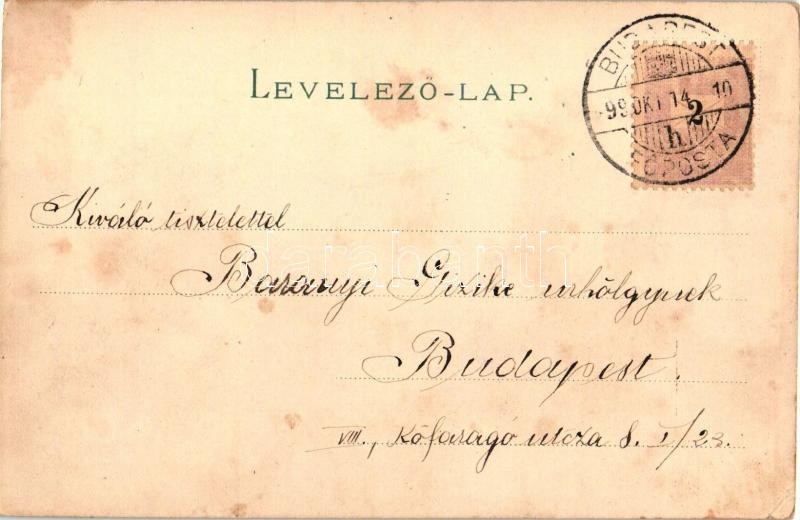 LEVELEZŐ-LAP.
BUDAPEST
99 OKT 14 10
2
h
FŐPOSTA
Kiváló tisztelettel
Baranyi Gizike úrhölgynek
Budapest.
VIII., Kőfaragó utcza 8. I/23.
darabanth